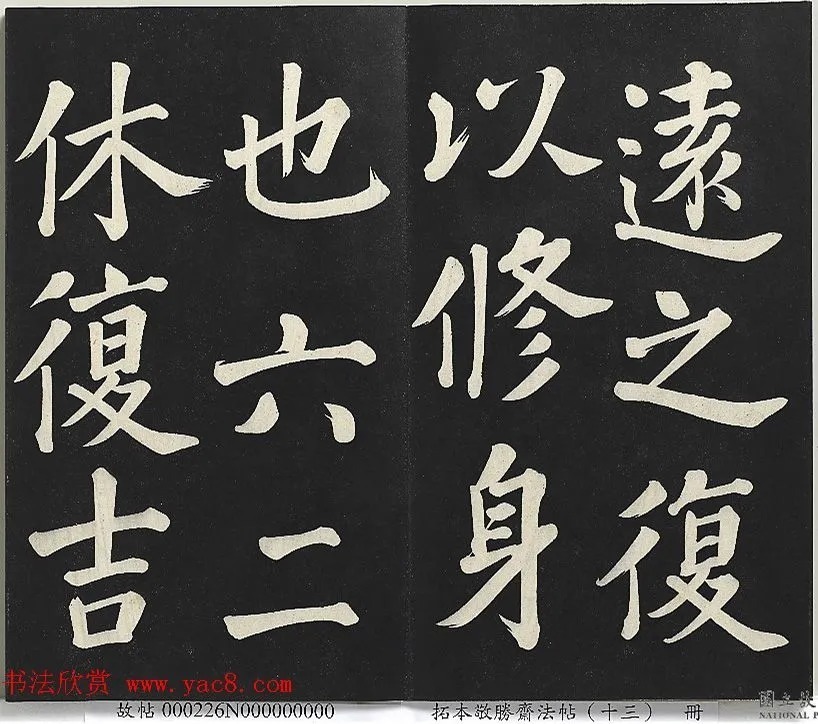 遠之復
以修身
也六二
休復吉
书法欣赏 www.yac8.com
故帖 000226N000000000
拓本敬勝齋法帖（十三） 冊
國立故
NATIONAL P